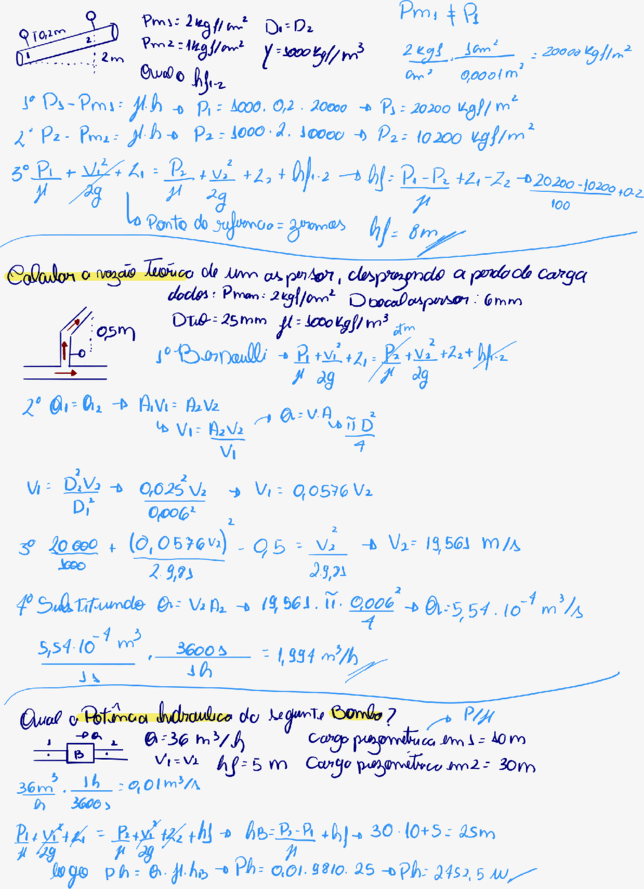 Pm1 = 2 kgf/cm² D1 = D2
Pm2 = 1 kgf/cm² γ = 1000 kgf/m³
Qual o hf1-2
0,2m
1 2 2m
Pm1 ≠ P1
2 kgf/cm² . 1cm²/0,0001m² = 20000 kgf/m²
1° P1 - Pm1 = γ.h → P1 = 1000. 0,2. 20000 → P1 = 20200 kgf/m²
2° P2 - Pm2 = γ.h → P2 = 1000. 2. 10000 → P2 = 10200 kgf/m²
3° P1/γ + V1²/2g + Z1 = P2/γ + V2²/2g + Z2 + hf1-2 → hf = P1-P2/γ + Z1-Z2 → 20200-10200/100 + 0-2
Ponto de referência = zeramos hf = 8m
Calcular a vazão Teórica de um aspersor, desprezando a perda de carga
dados: Pman: 2 kgf/cm² D bocal aspersor: 6mm
D tubo = 25mm γ = 1000 kgf/m³
0,5m
1° Bernoulli → P1/γ + V1²/2g + Z1 = P2/γ + V2²/2g + Z2 + hf1-2
atm
2° Q1 = Q2 → A1V1 = A2V2
V1 = A2V2/V1 → Q = V.A → πD²/4
V1 = D2²V2/D1² → 0,025²V2/0,006² → V1 = 0,0576V2
3° 20000/1000 + (0,0576V2)²/2.9,81 - 0,5 = V2²/2.9,81 → V2 = 19,561 m/s
4° Substituindo Q = V2A2 → 19,561. π. 0,006²/4 → Q = 5,54.10⁻⁴ m³/s
5,54.10⁻⁴ m³/1s . 3600s/1h = 1,994 m³/h
Qual a Potência hidraulica da seguinte Bomba?
P/γ
→Q
1 B 2
Q = 36 m³/h carga piezométrica em 1 = 10m
V1 = V2 hf = 5 m Carga piezométrica em 2 = 30m
36m³/h . 1h/3600s = 0,01m³/s
P1/γ + V1²/2g + Z1 = P2/γ + V2²/2g + Z2 + hf → hB = P2-P1/γ + hf → 30-10+5 = 25m
logo Ph = Q.γ.hB → Ph = 0,01.9810.25 → Ph = 2452,5 w